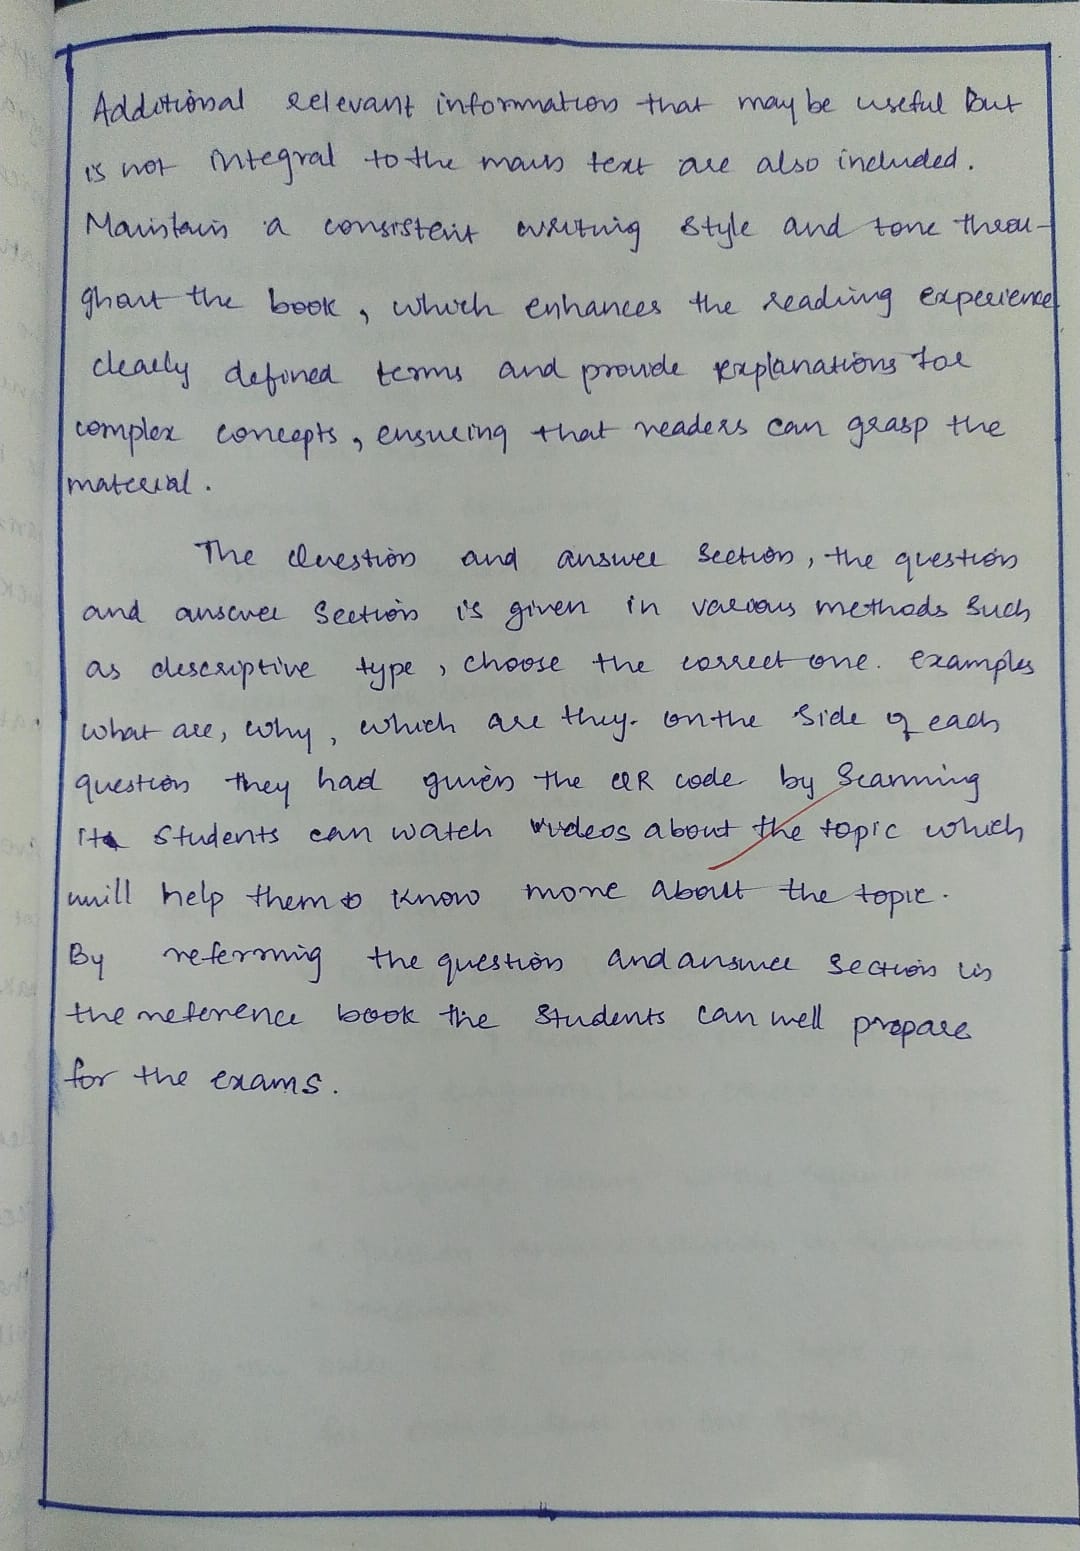 Additional relevant information that may be useful But
is not integral to the main text are also included.
Maintain a consistent writing style and tone throu-
ghout the book, which enhances the reading experience
clearly defined terms and provide explanations for
complex concepts, ensuring that readers can grasp the
material.
The Question and answer Section, the question
and answer Section is given in various methods Such
as descriptive type, choose the correct one. examples
what are, why, which are they. on the side of each
question they had given the QR code by Scanning
it Students can watch videos about the topic which
will help them to know more about the topic.
By referring the question and answer Section in
the reference book the Students can well prepare
for the exams.